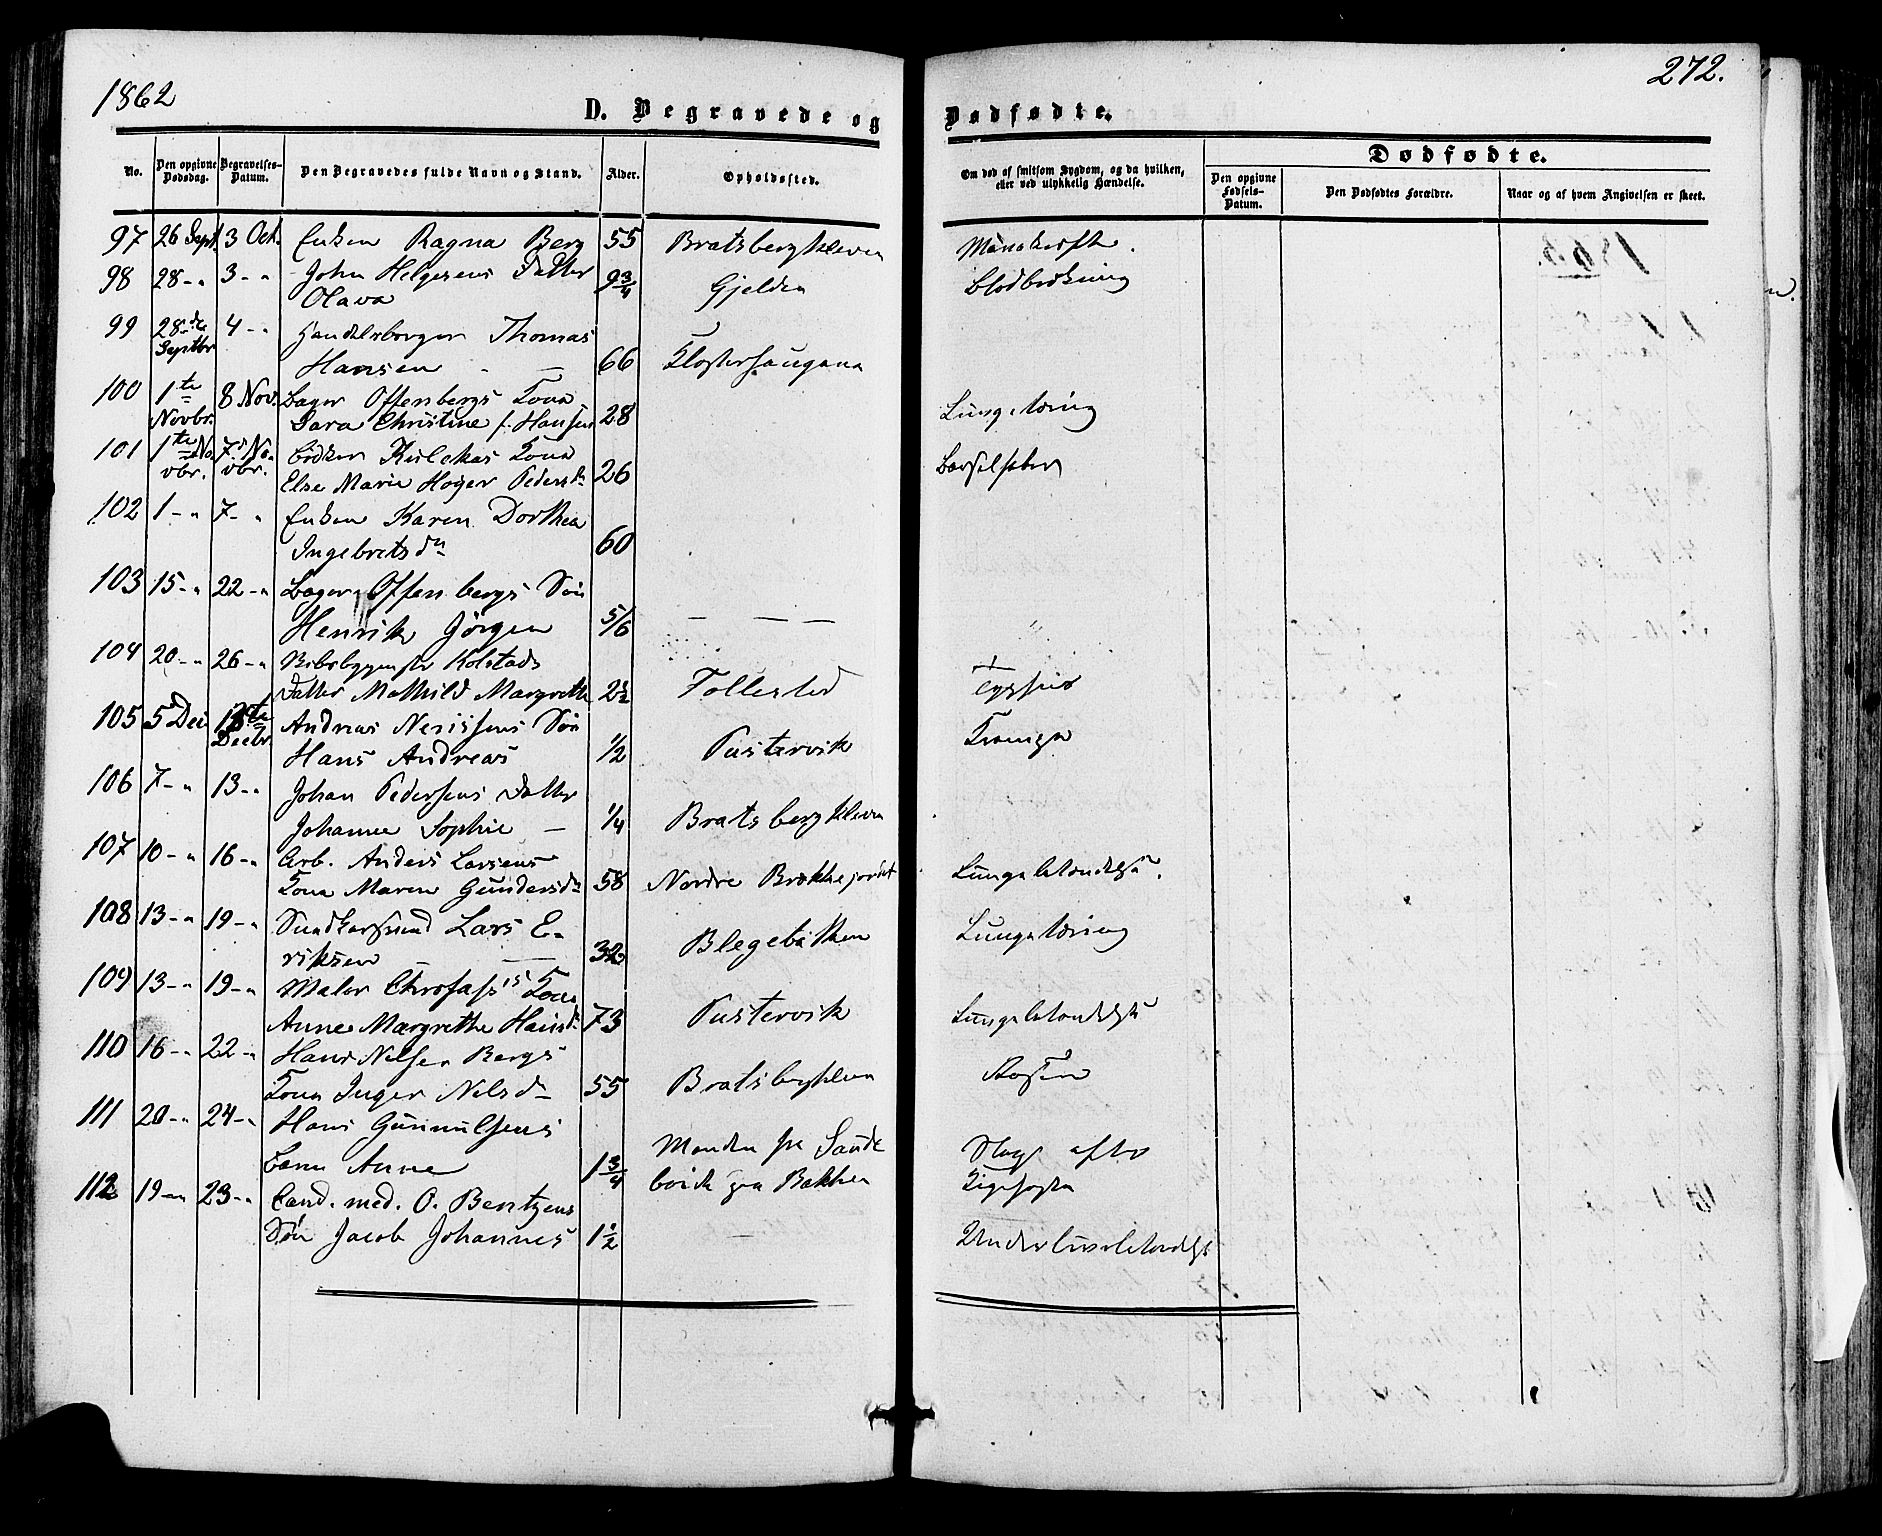 1862
272.
D. Begravede og Dødfødte.
No.
Den opgivne Dødsdag.
Begravelses-Datum.
Den Begravedes fulde Navn og Stand.
Alder.
Opholdssted.
Om død af smitsom Sygdom, og da hvilken, eller ved ulykkelig Hændelse.
Dødfødte.
Den opgivne Fødsels-Datum.
Den Dødfødtes Forældre.
Naar og af hvem Angivelsen er skeet.
97 26 Sept. 3 Oct. Enken Ragna Berg 55 Bratsbergkleven
98 28 - " 3 - " John Helgesens Datter Gjelden
Olava 9 3/4
99 28de Septbr 4 - " Handelsborger Thomas
Hansen - - 66
100 1te Novbr. 8 Nov. Bager Offenbergs Kone Lungetæring
Sara Christine f. Hansen 28
101 1te Novbr. 7 Novbr. Bødker Kone
Else Marie Pedersdr 26 Barselfeber
102 1 - " 7 - " Enken Karen Dorthea
Ingebretsdr 60
103 15 - " 22 - " Bager Offenbergs Søn
Henrik Jörgen 5/6 - - -
104 20 - " 26 - " Kolstads
Datter Mathild Margrethe 2 1/2 Follestad
105 5 Dec 18te Decbr. Andreas Nerissens Søn
Hans Andreas 1/2 Pustervik Krampe
106 7 - " 13 - " Johan Pedersens Datter
Johanne Sophie - 1/4 Bratsbergkleven
107 10 - " 16 - " Arb. Anders Larsens
Kone Maren Gundersdr 58 Nordre Brekkejordet Lungebetændelse.
108 13 - " 19 - " Lars E-
riksen - - 32 Blegebakken Lungetæring
109 13 - " 19 - " Maler Kone
Anne Margrethe Hansdr 73 Pustervik Lungebetændelse
110 16 - " 22 - " Hans Nilsen Bergs
Kone Inger Nilsdr 55 Bratsbergkleven Rosen
111 20 - " 24 - " Hans Gunnulsens
Barn Anne 1 3/4
112 19 - " 23 - " Cand. med. O. Bentzens
Søn Jacob Johannes 1 1/2 -